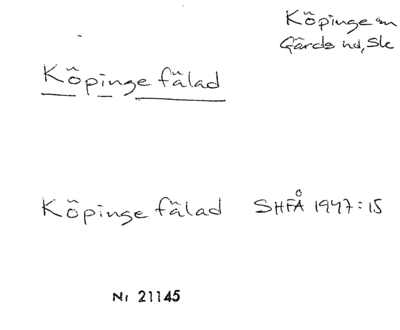 Köpinge sn
Gärds hd, Sk
Köpinge fälad
Köpinge fälad SHFÅ 1947:15
Nr 21145